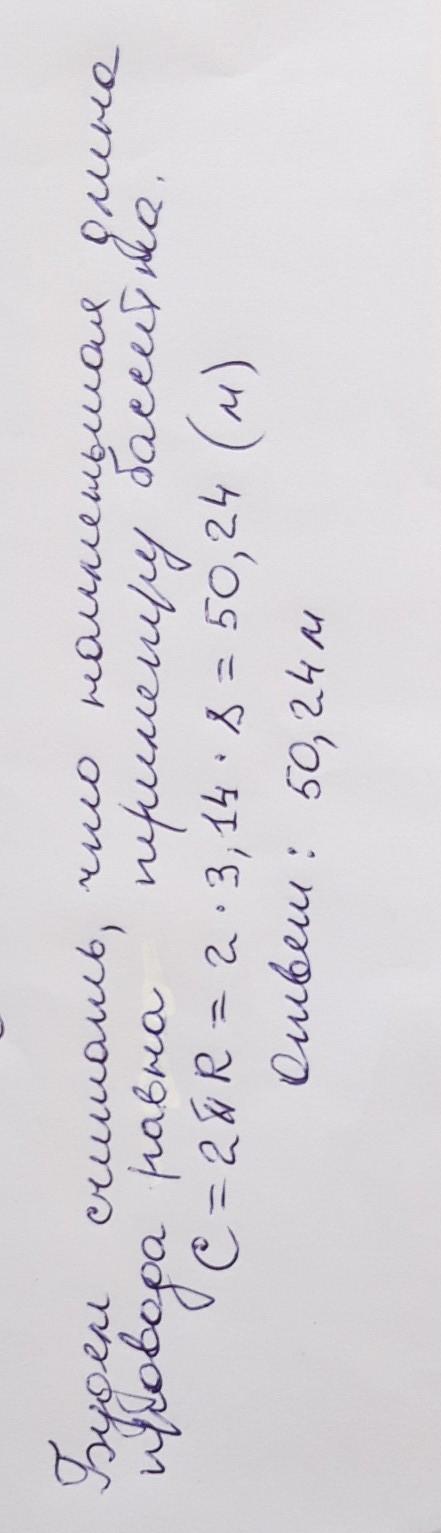 Будем считать, что наименьшая длина
провода равна периметру бассейна.
C = 2πR = 2 · 3,14 · 8 = 50,24 (м)
Ответ: 50,24 м